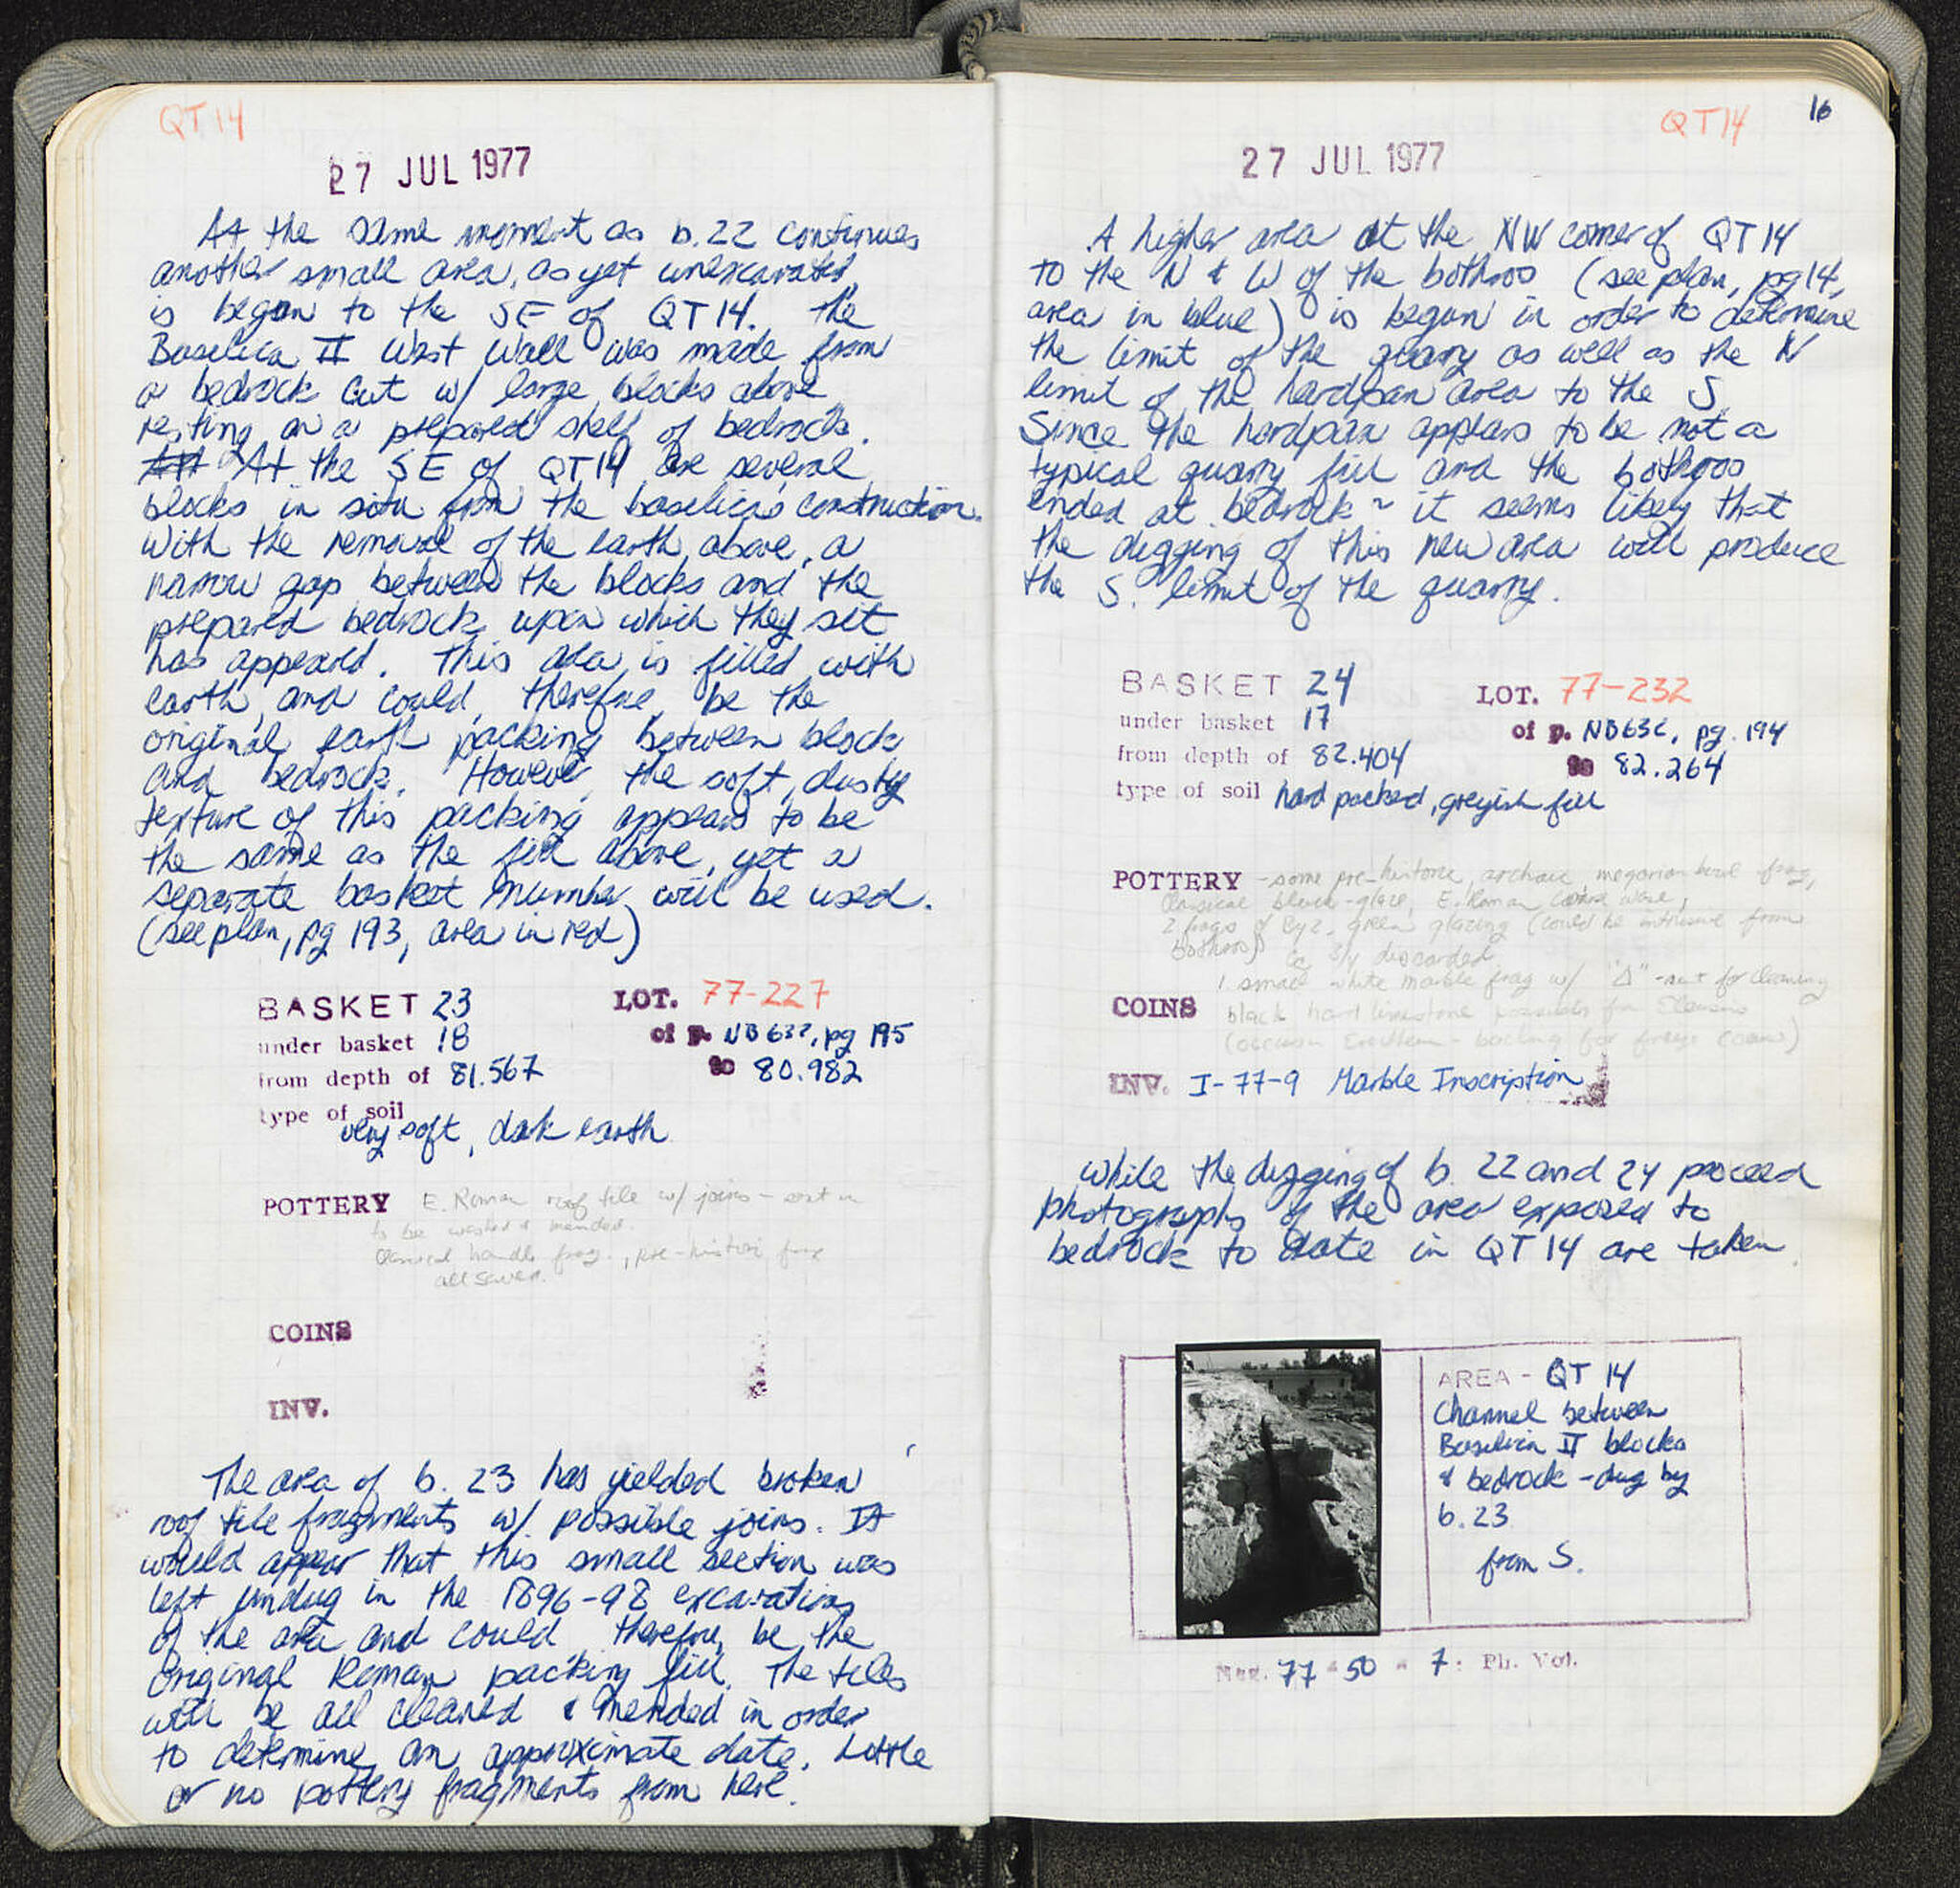 QT 14
27 JUL 1977
At the same moment as b.22 continues
another small area, as yet unexcavated,
is began to the SE of QT 14. The
Basilica II West Wall was made from
a bedrock cut w/ large blocks above
resting on a prepared shelf of bedrock.
At the SE of QT14 are several
blocks in situ from the basilica's construction.
With the removal of the earth above, a
narrow gap between the blocks and the
prepared bedrock upon which they sit
has appeared. This area is filled with
earth, and could, therefore, be the
original earth packing between block
and bedrock. However the soft, dusty
texture of this packing appears to be
the same as the fill above, yet a
separate basket number will be used.
(see plan, pg 193, area in red)
BASKET 23 LOT. 77-227
under basket 18 of p. NB 632, pg 195
from depth of 81.567 to 80.982
type of soil
very soft, dark earth
POTTERY E. Roman roof tile w/ joins - sent in
to be washed & mended.
Classical handle frag., pre-historic frag
all saved.
COINS
INV.
The area of b. 23 has yielded broken
roof tile fragments w/ possible joins. It
would appear that this small section was
left undug in the 1896-98 excavations
of the area and could, therefore, be the
original Roman packing fill. The tiles
will be all cleaned & mended in order
to determine an approximate date. Little
or no pottery fragments from here.
QT14
16
27 JUL 1977
A higher area at the NW corner of QT 14
to the N & W of the bothros (see plan, pg 14,
area in blue) is begun in order to determine
the limit of the quarry as well as the N
limit of the hardpan area to the S.
Since the hardpan appears to be not a
typical quarry fill and the bothros
ended at bedrock ~ it seems likely that
the digging of this new area will produce
the S. limit of the quarry.
BASKET 24 LOT. 77-232
under basket 17 of p. NB632, pg. 194
from depth of 82.404 to 82.264
type of soil hard packed, greyish fill
POTTERY - some pre-historic, archaic, megarian bowl frag,
Classical black-glaze, E. Roman coarse ware,
2 frags of Byz. green glazing (could be intrusive from
bothros) Ca 3/4 discarded
1 small white marble frag w/ "Δ" - out for cleaning
COINS black hard limestone possibly from Eleusis
backing for frieze
INV. I-77-9 Marble Inscription
While the digging of b. 22 and 24 proceed
photographs of the area exposed to
bedrock to date in QT 14 are taken.
AREA - QT 14
Channel between
Basilica II blocks
& bedrock - dug by
b.23
from S.
Neg. 77 - 50 - 7: Ph. Vol.